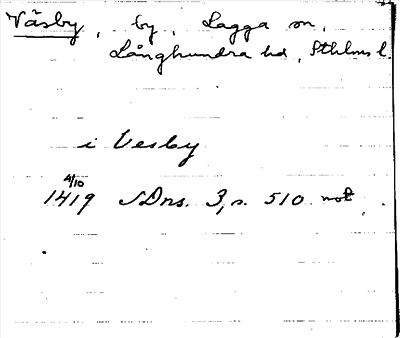 Väsby, by, Lagga sn,
Långhundra hd, Sthlms l.
i Vesby
4/10
1419 SDns. 3, s. 510 not.